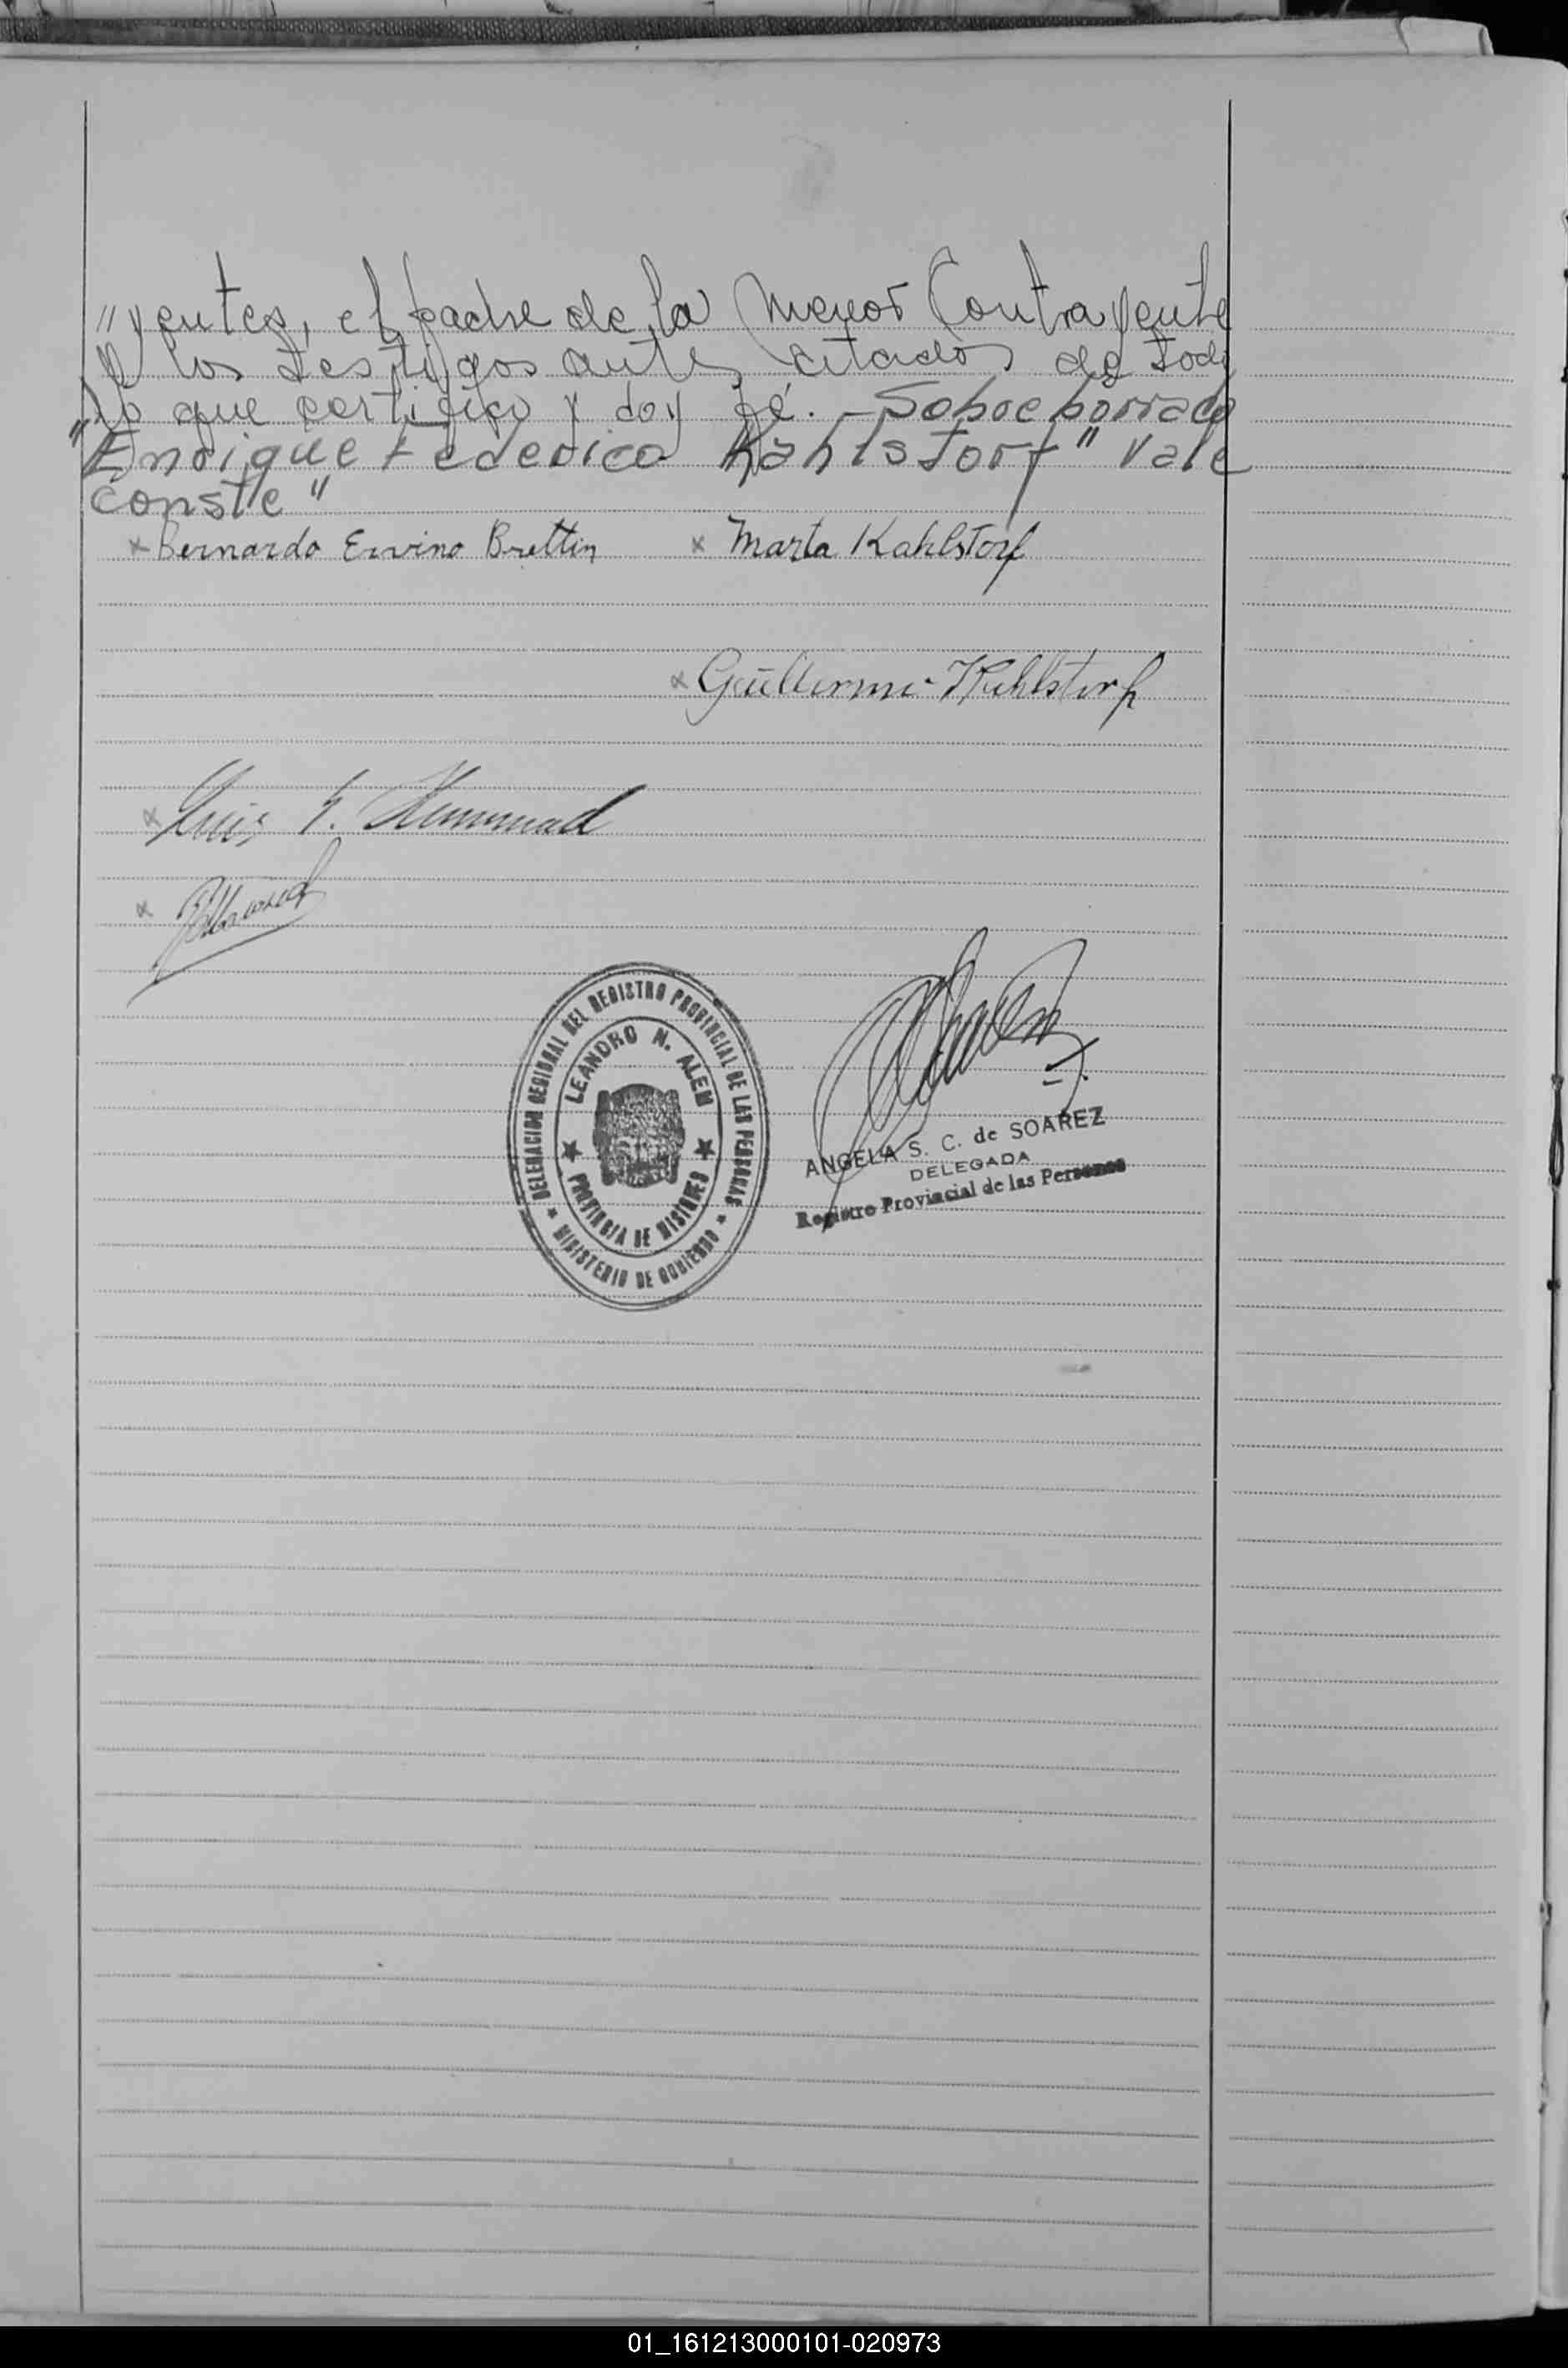 "yentes, el padre de la menor Contrayente
y los testigos antes citados de todo
lo que certifico y doy fé. - Sobreborrado
"Enrique Federico Kahlstorf" Vale
conste"
x Bernardo Ervino Brettin x Marta Kahlstorf
x Guillermo Kahlstorf
x Luis
x
DELEGACION REGIONAL DEL REGISTRO PROVINCIAL DE LAS PERSONAS
LEANDRO N. ALEM
PROVINCIA DE MISIONES
MINISTERIO DE GOBIERNO
ANGELA S. C. de SOAREZ
DELEGADA
Registro Provincial de las Personas
01_161213000101-020973